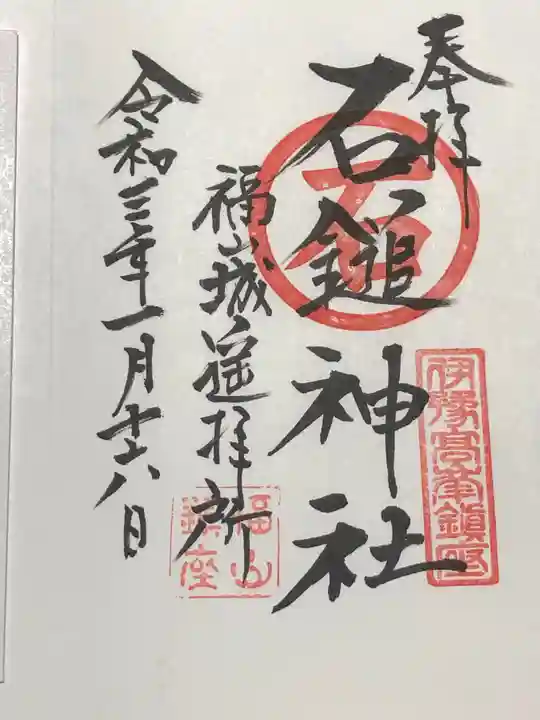 奉拝
石鎚神社
石
伊豫高峯鎮座
福山城遥拝所
福山鎮座
令和三年一月十八日